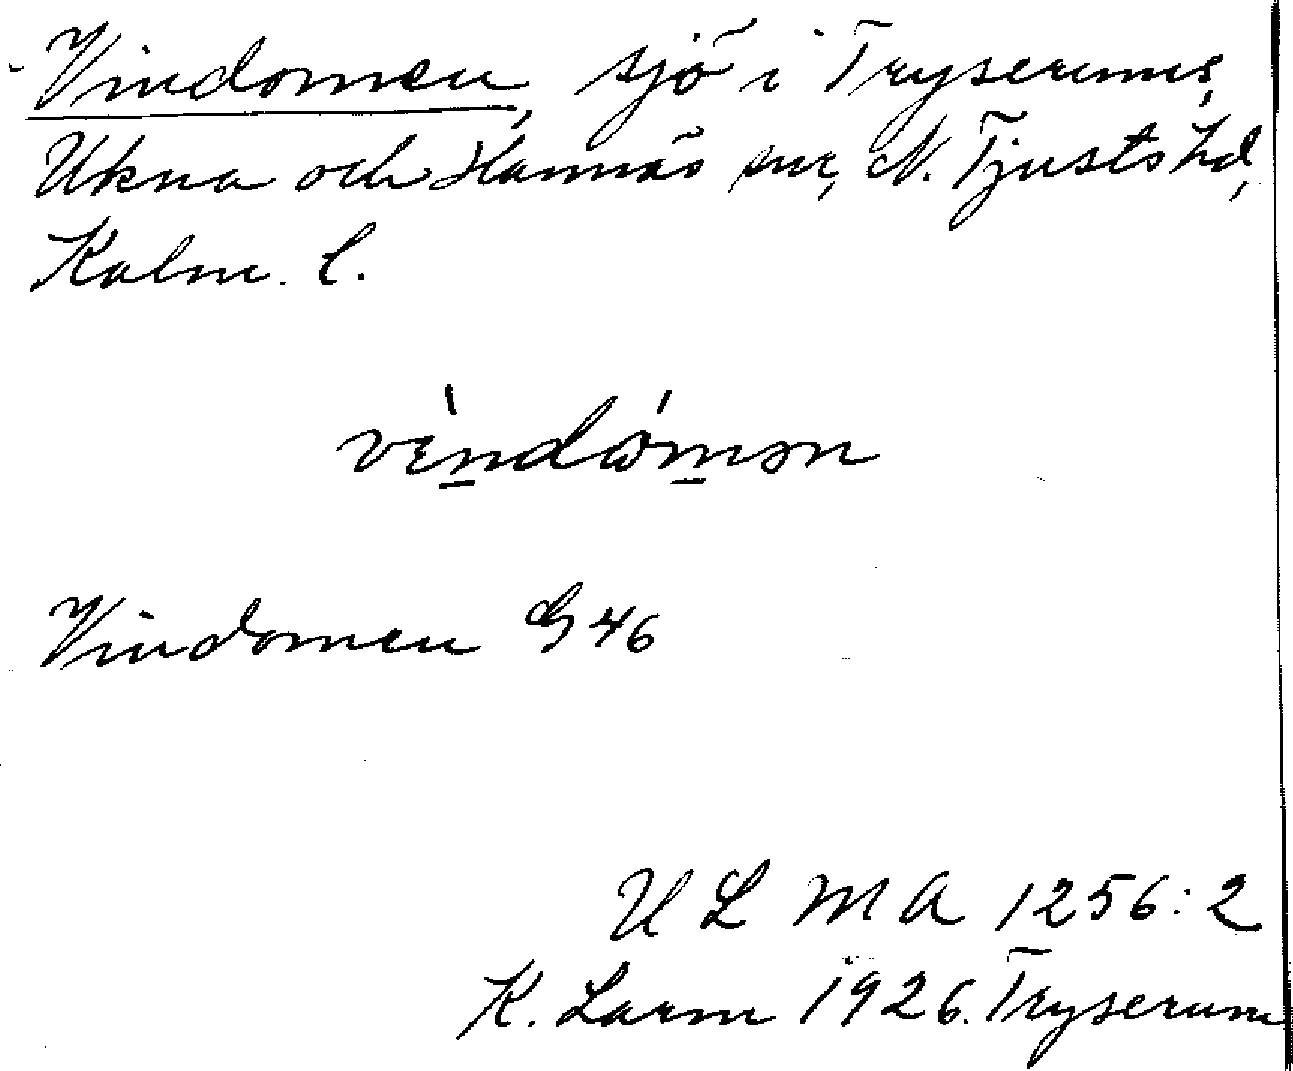 Vindomen, sjö i Tryserums,
Ukna och Hannäs snr, N. Tjusts hd,
Kalm. l.
Vindomen G 46
U L M A 1256:2
K. Larm 1926. Tryserum